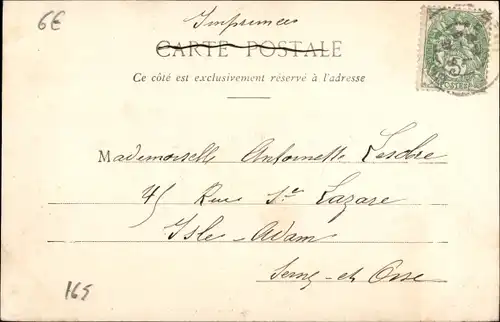 6€
Imprimés
CARTE POSTALE
Ce côté est exclusivement réservé à l'adresse
5
POSTES
Mademoiselle Antoinette
45 Rue St Lazare
Isle-Adam
Seine-et-Oise
165